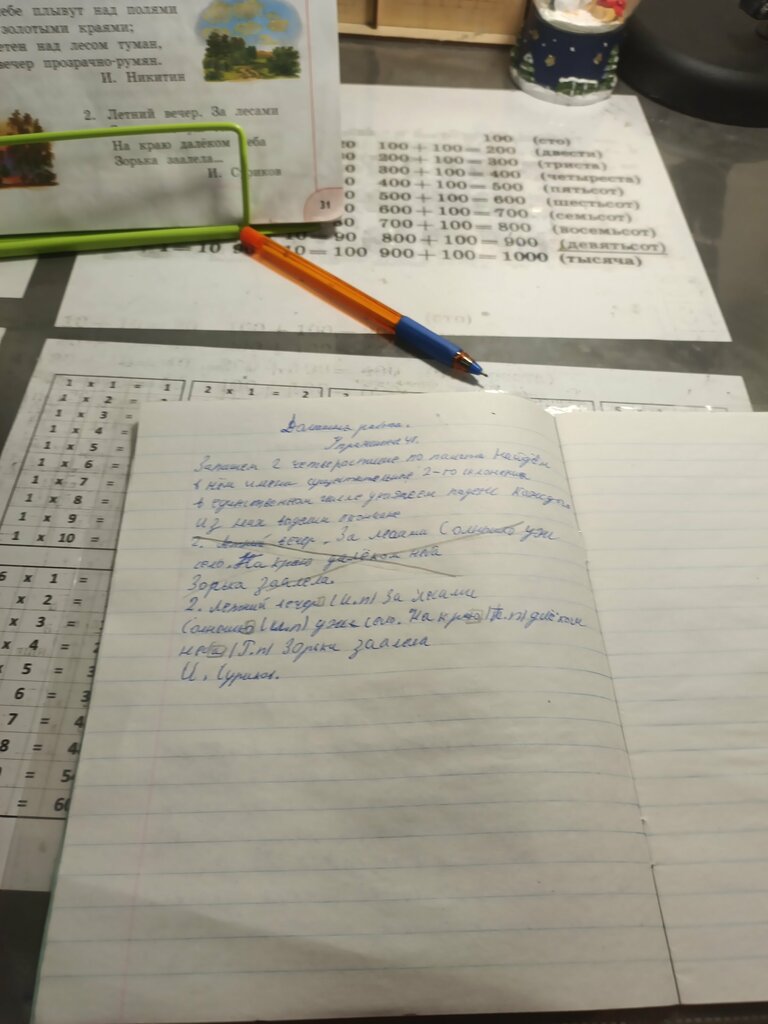 ебе плывут над полями
золотыми краями;
етен над лесом туман,
вечер прозрачно-румян.
И. Никитин
2. Летний вечер. За лесами
На краю далёком неба
Зорька заалела...
И. Суриков
31
100 (сто)
20 100 + 100 = 200 (двести)
0 200 + 100 = 300 (триста)
0 300 + 100 = 400 (четыреста)
0 400 + 100 = 500 (пятьсот)
0 500 + 100 = 600 (шестьсот)
0 600 + 100 = 700 (семьсот)
80 700 + 100 = 800 (восемьсот)
10 = 90 800 + 100 = 900 (девятьсот)
+ 1 = 10 90 10 = 100 900 + 100 = 1000 (тысяча)
1 x 1 = 1
1 x 2 =
1 x 3 =
1 x 4 =
1 x 5 =
1 x 6 =
1 x 7 =
1 x 8 =
1 x 9 =
1 x 10 =
2 x 1 = 2
6 x 1 =
x 2 =
x 3 =
x 4 =
x 5 = 3
6 = 3
7 = 4
8 = 4
= 54
= 60
Домашняя работа.
Упражнение 41.
Запишем 2 четверостишие по памяти Найдём
в нём имена существительные 2-го склонения
в единственном числе укажем падеж каждого
из них
2. Летний вечер. За лесами Солнышко уж
село. На краю далёком неба
Зорька заалела.
2. Летний вечер (И.п) За лесами
Солнышко (И.п) уж село. На краю (П.п) далёком
неба (Р.п) Зорька заалела
И. Суриков.